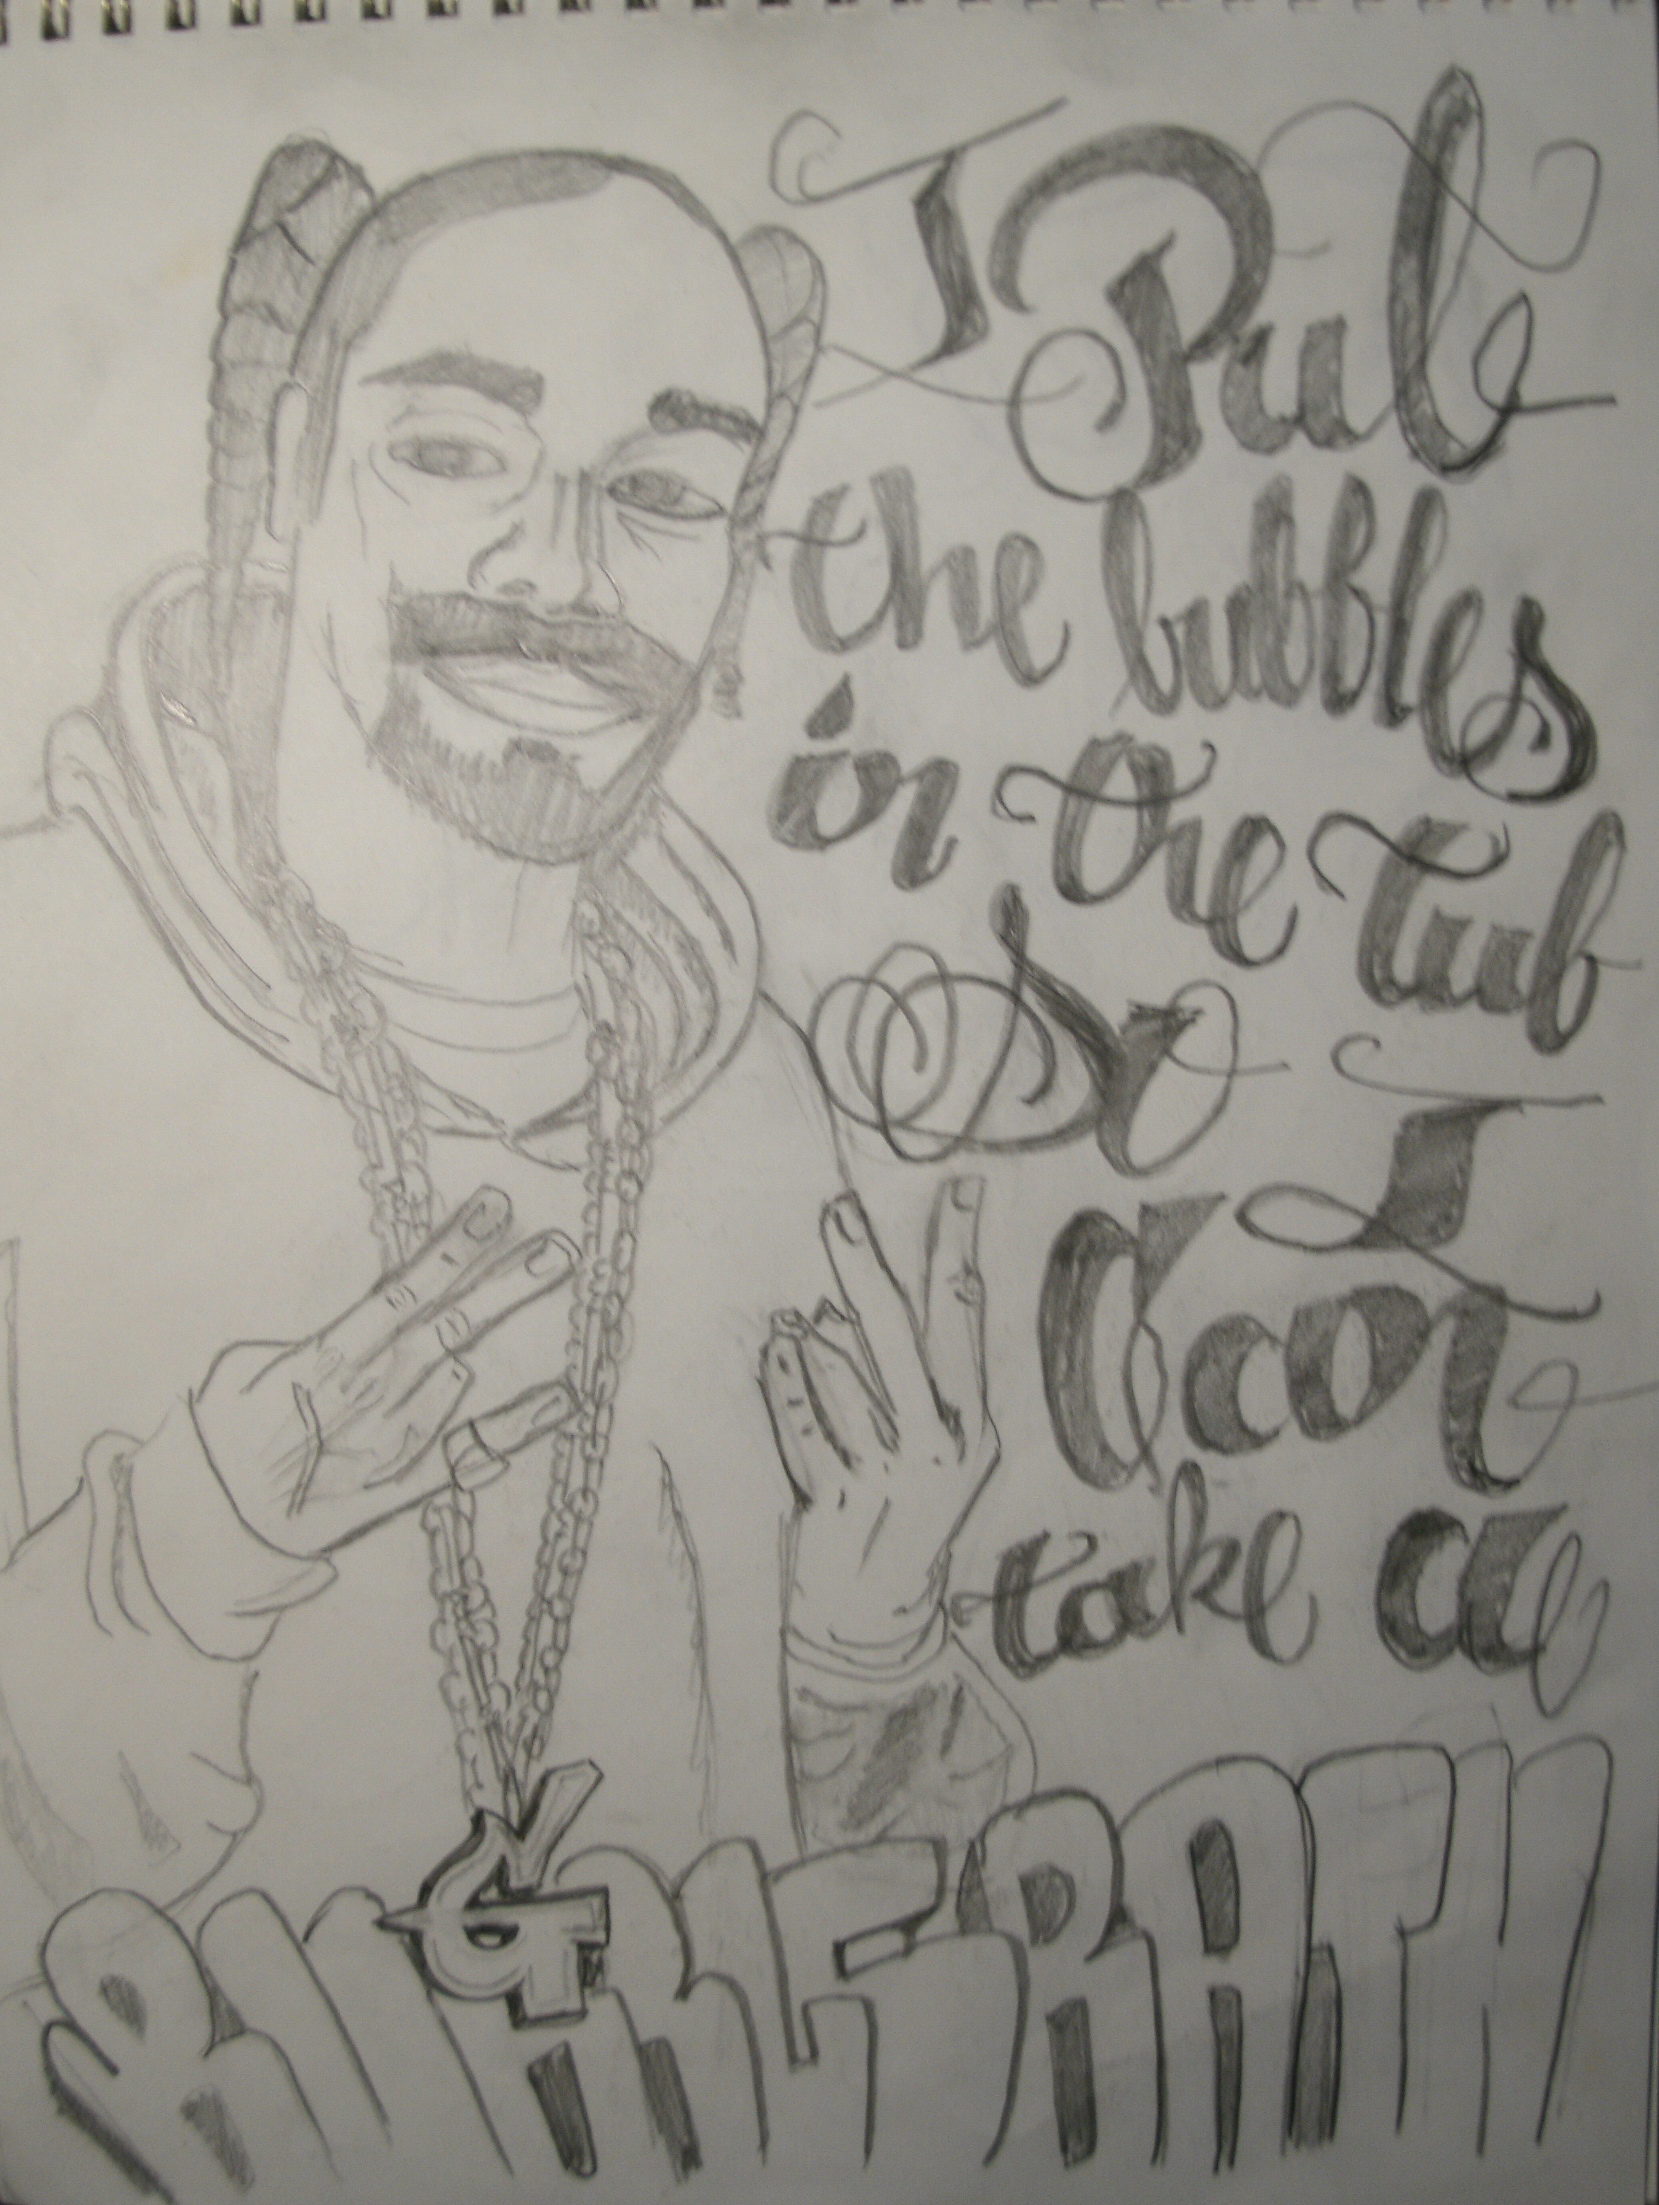 I Put
the bubbles
in the tub
So I
Can
take a
BUBBLEBATH